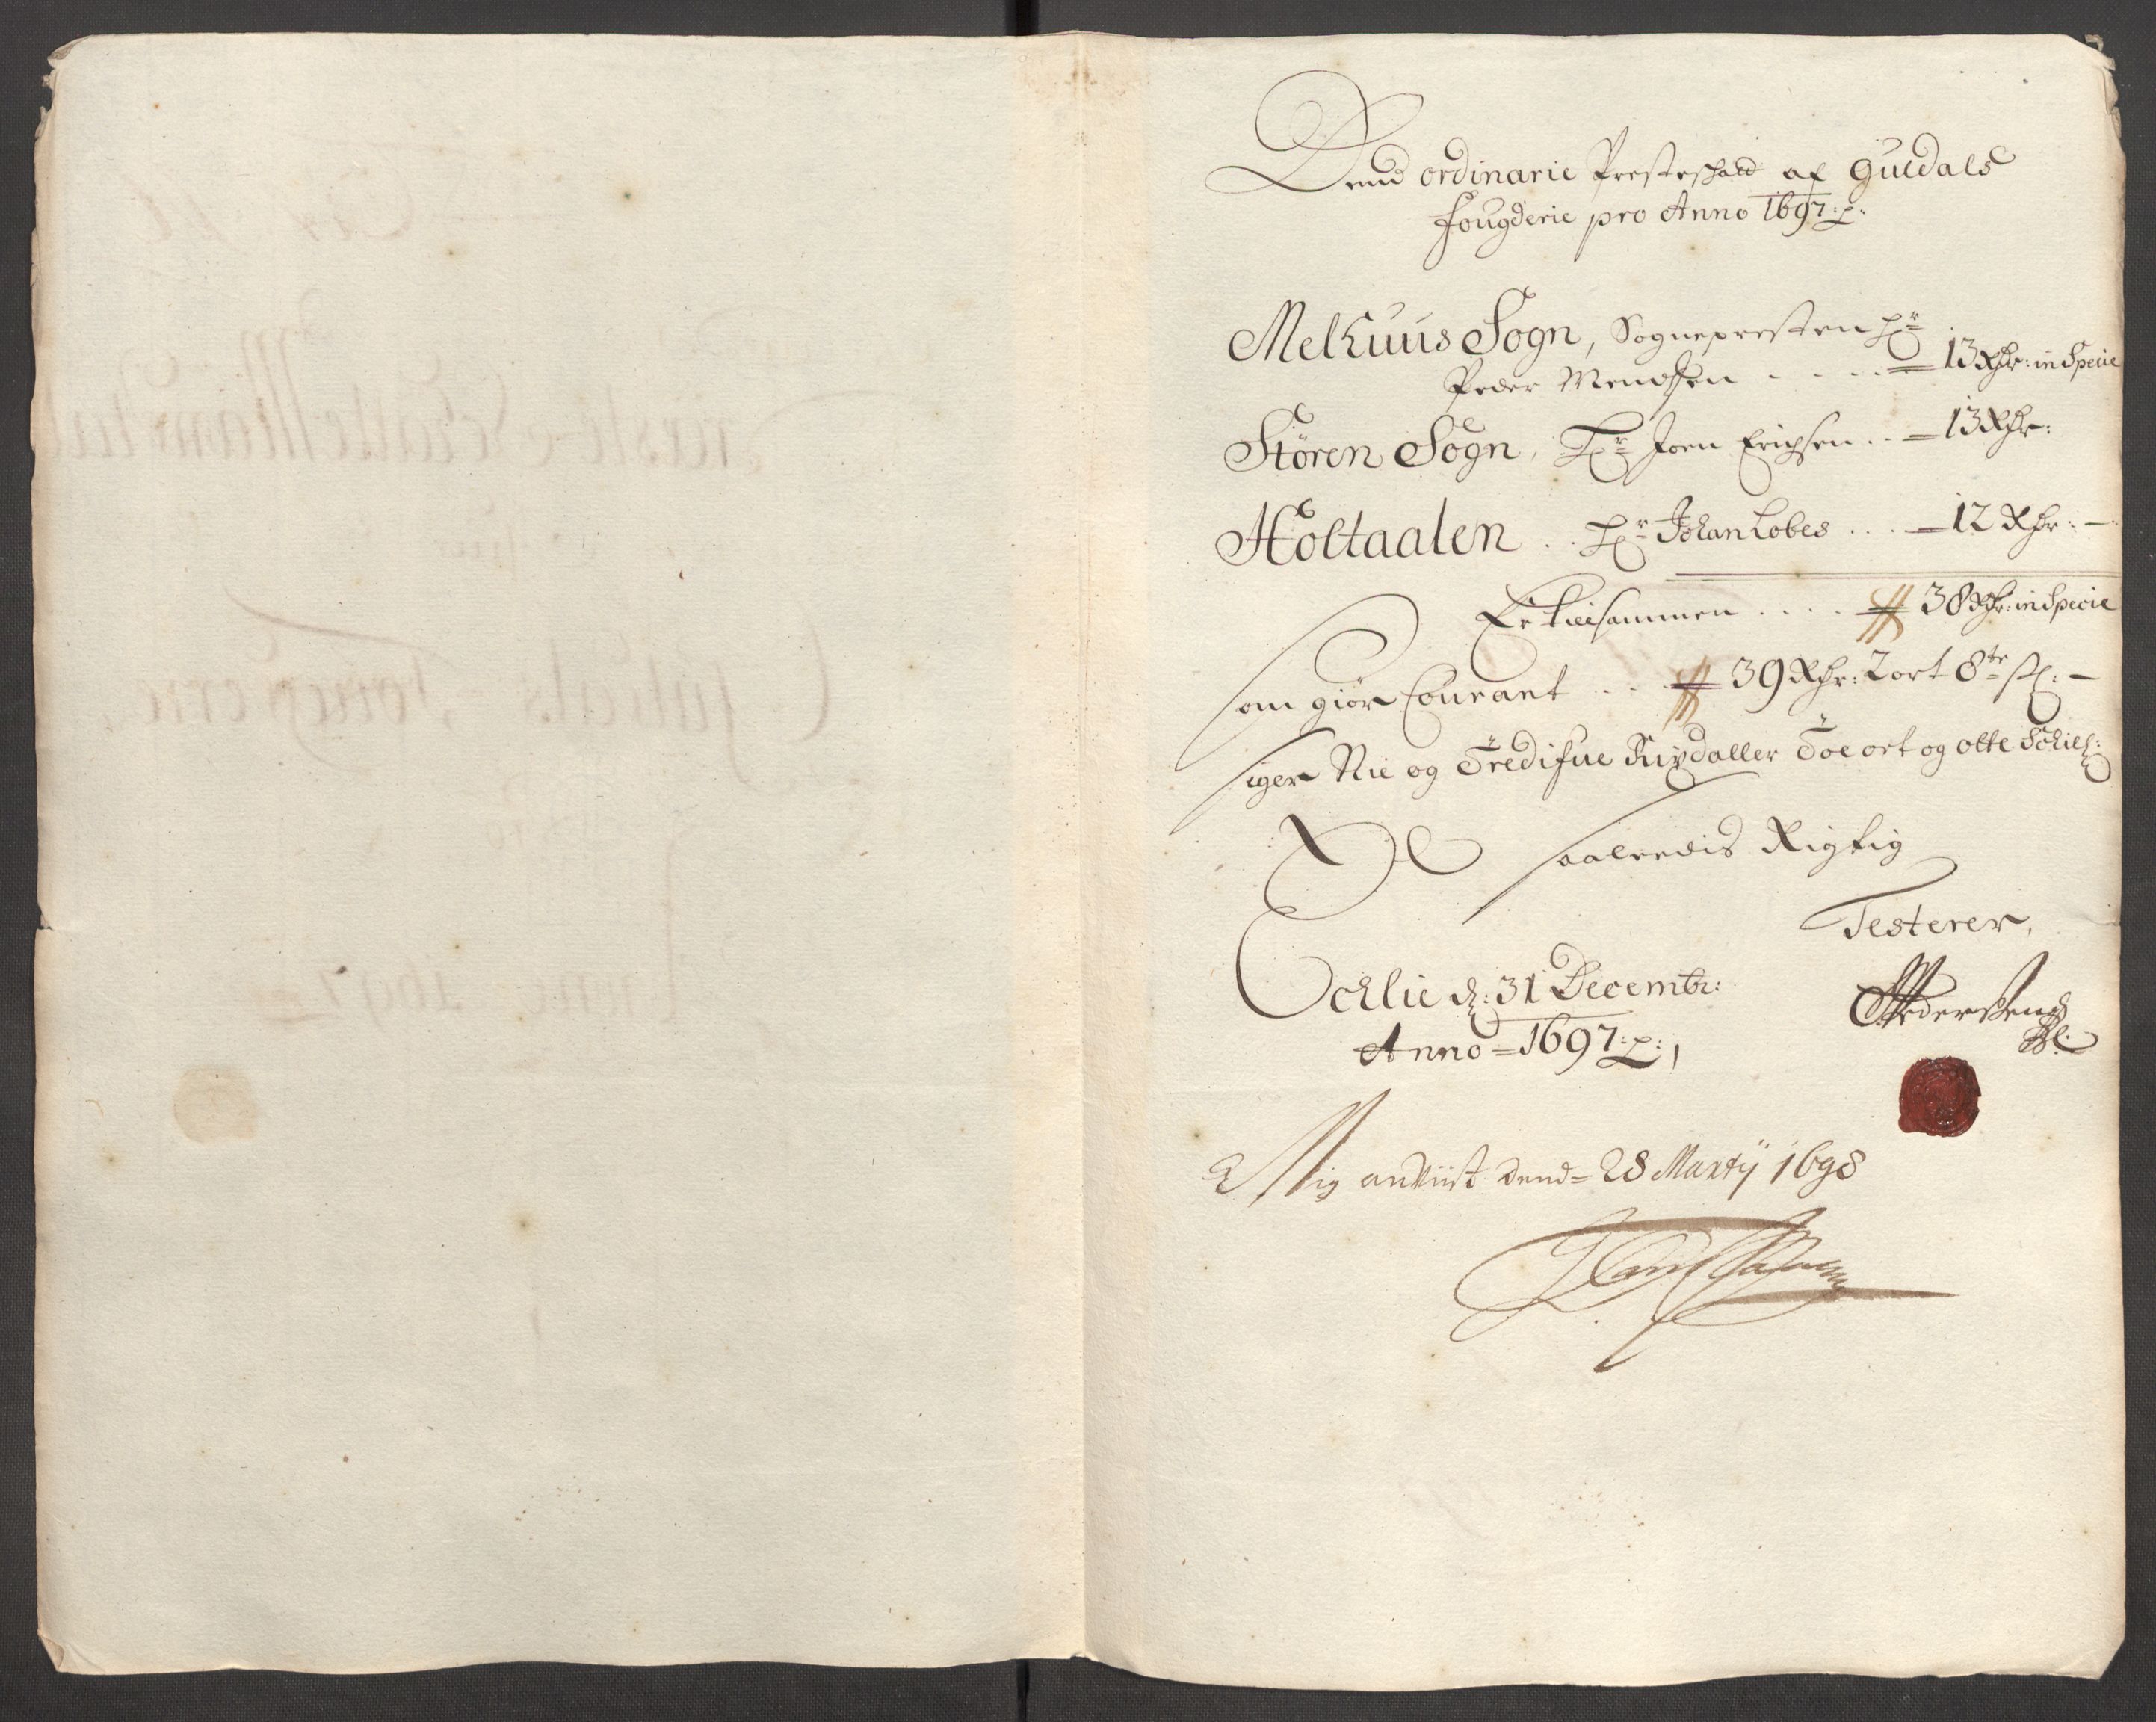 Dend ordinarie Presteskatt af Guldals
Fougderie pro Anno 1697: p:
Melhuus Sogn, Sognepresten Hr
Peder Mendsen - - - - 13 Rdr: in Specie
Stören Sogn, Hr Joen Erichsen .. 13 Rdr:
Holtaalen .. Hr Johan Lobes .... 12 Rdr: -
Er tilsammen .... 38 Rdr: in Specie
Som giör Courant ... 39 Rdr: 2 ort 8te s: -
Siger Nie og Tredifue Rixdaller Toe ort og otte Schiel:
At Saaledis Rigtig
Testerer,
Oehlie d: 31 Decembr:
Anno = 1697: p:
Pedersen
Mig anviist dend = 28 Martij 1698